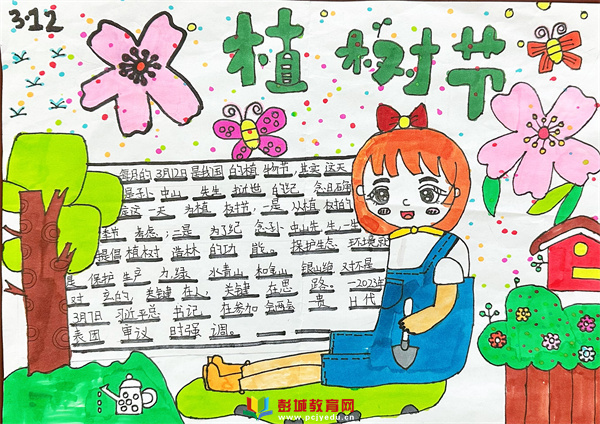 3.12
植树节
每月的3月12日是我国的植物节,其实这天
是孙中山先生逝世的纪念日
在这一天为植树节,一是从植树的
季节考虑;二是为了纪念孙中山先生,一生
提倡植树造林的功能。保护生态环境就
是保护生产力,绿水青山和金山银山绝对不是
对立的,关键在人,关键在思路。一2023年
3月7日习近平总书记在参加全两会贵H代
表团审议时强调。
彭城教育网
www.pcjyedu.cn